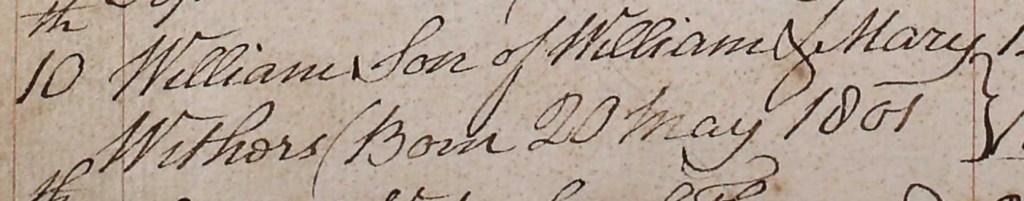 th
10 William Son of William & Mary
Withers (Born 20 May 1801
th